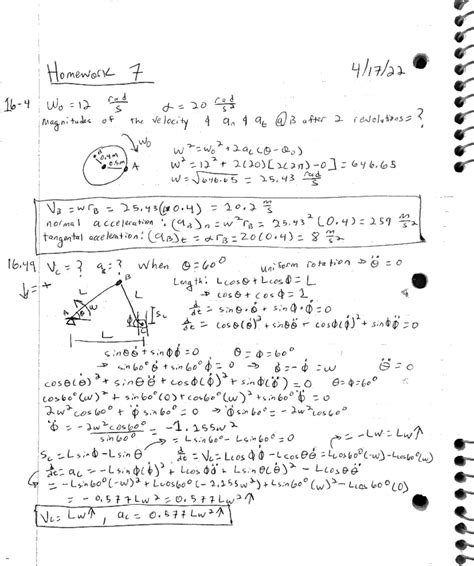 Homework 7 4/17/22
16-4 ω₀ = 12 rad/s α = 20 rad/s²
Magnitudes of the velocity & aₙ & aₜ @ B after 2 revolutions = ?
ω
0.4m
0.5m
A
ω² = ω₀² + 2α(θ - θ₀)
ω² = 12² + 2(20)[2(2π) - 0] = 646.65
ω = √646.65 = 25.43 rad/s
V_B = ωr_B = 25.43(0.4) = 10.2 m/s
normal acceleration: (a_B)ₙ = ω²r_B = 25.43²(0.4) = 259 m/s²
tangental acceleration: (a_B)ₜ = αr_B = 20(0.4) = 8 m/s²
16.49 V_c = ? a_c = ? When θ = 60° uniform rotation → θ̈ = 0
↓ = + B
L L
A θ ω φ C
L
Length: Lcosθ + Lcosφ = L
→ cosθ + cosφ = 1
d/dt = sinθ·θ̇ + sinφ·φ̇ = 0
d/dt = cosθ(θ̇)² + sinθθ̈ + cosφ(φ̇)² + sinφφ̈ = 0
sinθθ̇ + sinφφ̇ = 0 θ = φ = 60°
→ sin60°θ̇ + sin60°φ̇ = 0 → θ̇ = -φ̇ = ω θ̈ = 0
cosθ(θ̇)² + sinθθ̈ + cosφ(φ̇)² + sinφ(φ̈) = 0 θ = φ = 60°
cos60°(ω)² + sin60°(0) + cos60°(ω)² + sin60°φ̈ = 0
2ω²cos60° + φ̈sin60° = 0 → φ̈sin60° = -2ω²cos60°
φ̈ = -2ω²cos60°/sin60° = -1.155ω²
→ = Lsin60° - Lsin60° = 0 → = -Lω = Lω↑
S_c = Lsinφ - Lsinθ d/dt = V_c = Lcosφφ̇ - Lcosθθ̇ = Lcos60°(-ω) - Lcos60°(ω)
d/dt = a_c = -Lsinφ(φ̇)² + Lcosφφ̈ + Lsinθ(θ̇)² - Lcosθθ̈
= -Lsin60°(-ω)² + Lcos60°(-1.155ω²) + Lsin60°(ω)² - Lcos60°(0)
= -0.577Lω² = 0.577Lω²↑
V_c = Lω↑, a_c = 0.577Lω²↑